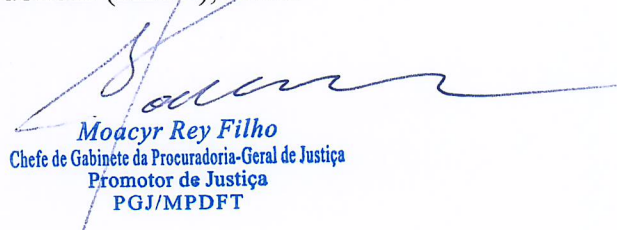 Moacyr Rey Filho
Chefe de Gabinete da Procuradoria-Geral de Justiça
Promotor de Justiça
PGJ/MPDFT